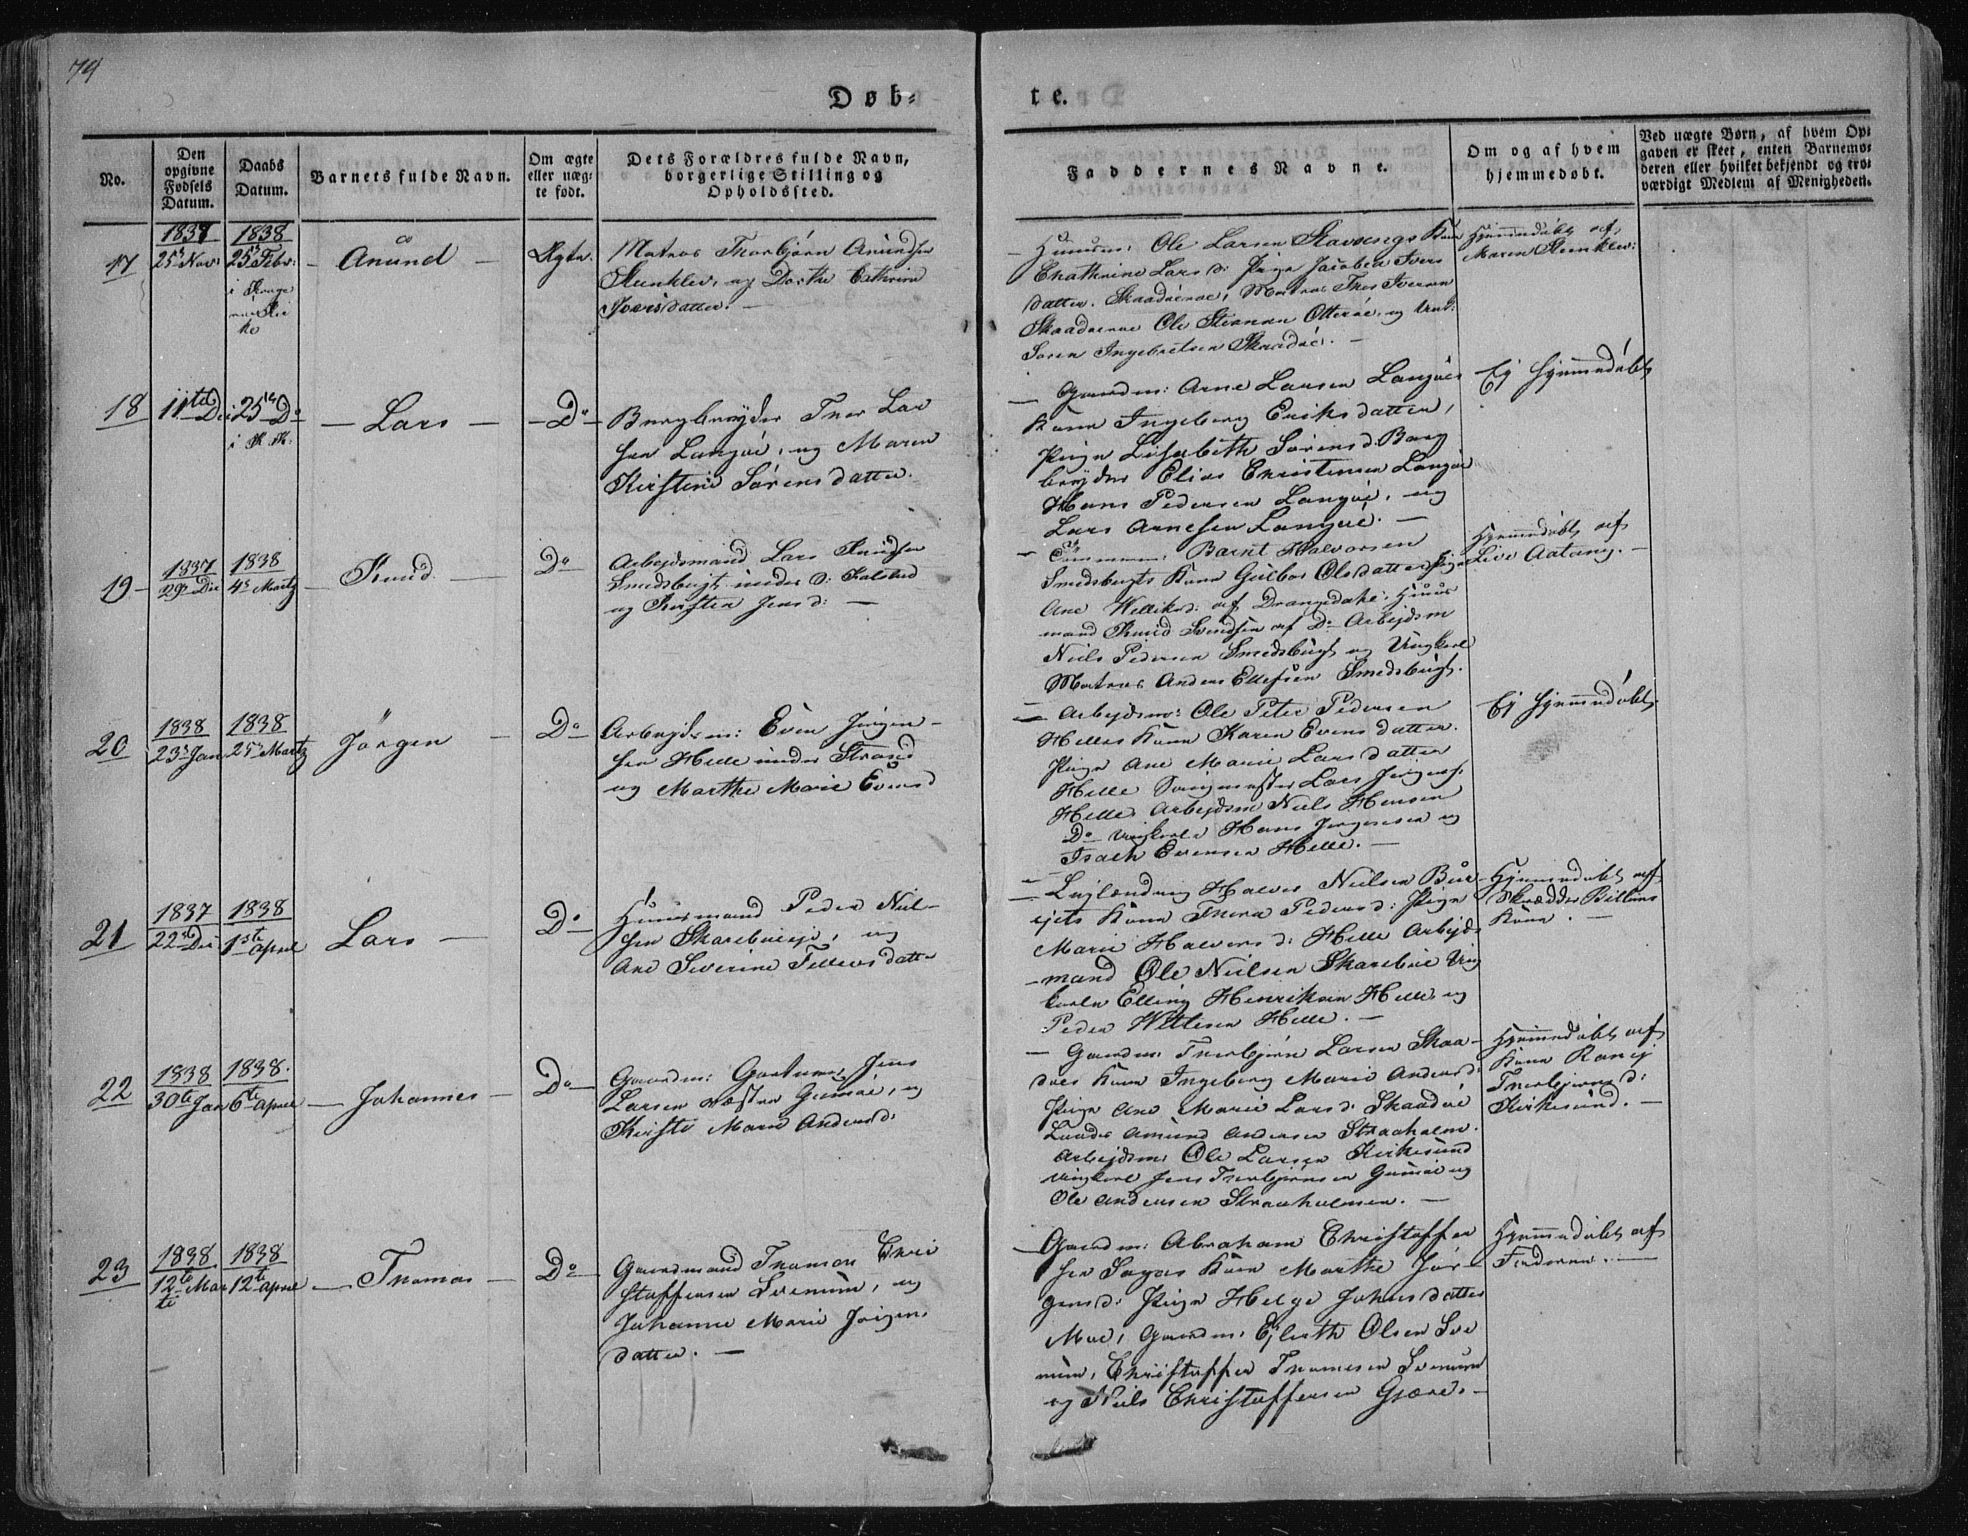 79
Døb-
te.
No.
Den opgivne Fødsels Datum.
Daabs Datum.
Barnets fulde Navn.
Om ægte eller uægte født.
Dets Forældres fulde Navn, borgerlige Stilling og Opholdssted.
Faddernes Navne.
Om og af hvem hjemmedøbt.
Ved uægte Børn, af hvem Opgaven er skeet, enten Barnemoderen eller hvilket bekjendt og troværdigt Medlem af Menigheden.
17
1837
25 Nov:
1838
25 Febr:
i
Anund
Ægte
Matros Thorbjørn Anundsen
Stenklev, og Dorthe Cathrine
Iversdatter. —
Ole Larsen Stavsengs Kone
Chathrine Larsd: Pige Jacobea Ivers
datter. Skaadøeroe, Matros Thor Iversen
Skaadøeroe Ole Stevnsen Otterøe, og
Søren Ingebretsen Skaadøe. —
Hjemmedøbt af
Maren Stenklev:
18
11te De:
25 Do
i
— Lars —
— Do
Bergbryder Thor Lar
sen Langøe, og Maren
Kirstine Sørensdatter.
— Gaardm: Arne Larsen Langøes
Kone Ingeborg Eriksdatter,
Pige Lisabeth Sørensd. Berg
bryder Elias Christensen Langøe
Hans Pedersen Langøe, og
Lars Arnesen Langøe. —
Ej hjemmedøbt
19 —
1837
29 De
1838
4 Martz
— Knud —
Do
Arbejdsmand Lars Knudsen
Smedsbugt under
og Kirsten Jensd: —
Barnt Halvorsen
Smedsbugts Kone Gulbor Olsdatter, Pige
Ane af Drangedahl, Huus
mand Knud Svendsen af Do Arbejdsm
Niels Pedersen Smedsbugt og Ungkarl
Matros Anders Ellefsen Smedsbugt.
Hjemmedøbt af
Live Aatang. —
20
1838
23 Jan
1838
25 Martz
Jørgen —
Do
Arbejdsm: Even Jørgen-
sen Helle under Strand
og Marthe Marie Evensd
— Arbejdsm: Ole Peter Pedersen
Helles Kone Karen Evensdatter.
Pige Ane Marie Larsdatter
Helle Lars Jørgens.
Helle, Arbejdsm Niels Hansen
Do Ungkarle Hans Jørgensen og
Isach Evensen Helle. —
Ej hjemmedøbt.
21
1837
22 De
1838
1ste April
Lars —
Do
Huusmand Peder Niel-
sen og
Ane Severine Tellevsdatter
— Halvor Nielsen
Kone Thora Pedersd: Pige
Marie Halvorsd: Helle Arbejds
mand Ole Nielsen Ung
karle Elling Henriksen Helle, og
Peder Helle. —
Hjemmedøbt af
Skrædder
Kone. —
22
1838
30te Jan
1838.
6te April
— Johannes —
Do —
Gaardm: Jens
Larsen Gumøe, og
Kirsti Marie Andersd:
— Gaardm: Thorbjørn Larsen Skaa-
døes Kone Ingeborg Marie Andersd:
Pige Ane Marie Larsd. Skaadøe
Amund Andersen Straaholm.
Arbejdsm: Ole Larsen Kirkesund
Ungkarl Jens Thorbjørnsen Gumøe og
Ole Andersen Straaholmen. —
Hjemmedøbt af
Kone
Thorbjørnsd:
Kirkesund. —
23
1838
12te Mar
1838
12te April
— Thomas —
Do —
Gaardmand Thomas Chri
stoffersen og
Johanne Marie Jørgens
datter. —
— Gaardm: Abraham Christoffer
sen Kone Marthe Jør-
gensd: Pige Helge Johnsdatter
Moe, Gaardm: Olsen
Christoffer Thomesen
og Niels Christoffersen —
Hjemmedøbt af
Faderen. —